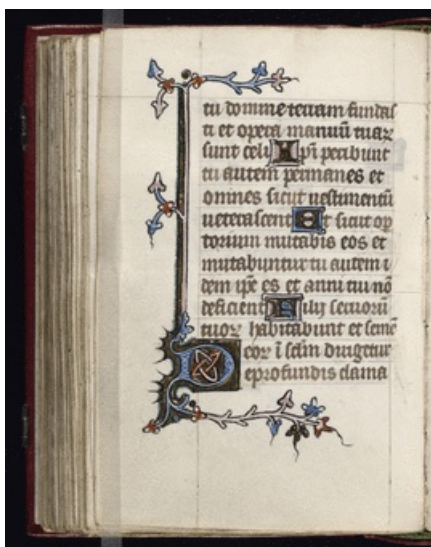 tu domine terram fundas
ti et opera manuū tuaꝝ
sunt celi Ipī peribunt
tu autem permanes et
omnes sicut uestimentū
ueterascent Et sicut op
torium mutabis eos et
mutabuntur tu autem i
dem ipē es et anni tui nō
deficient Filij seruorū
tuoꝝ habitabunt et semē
eoꝝ ī sclm dirigetur
De profundis clama